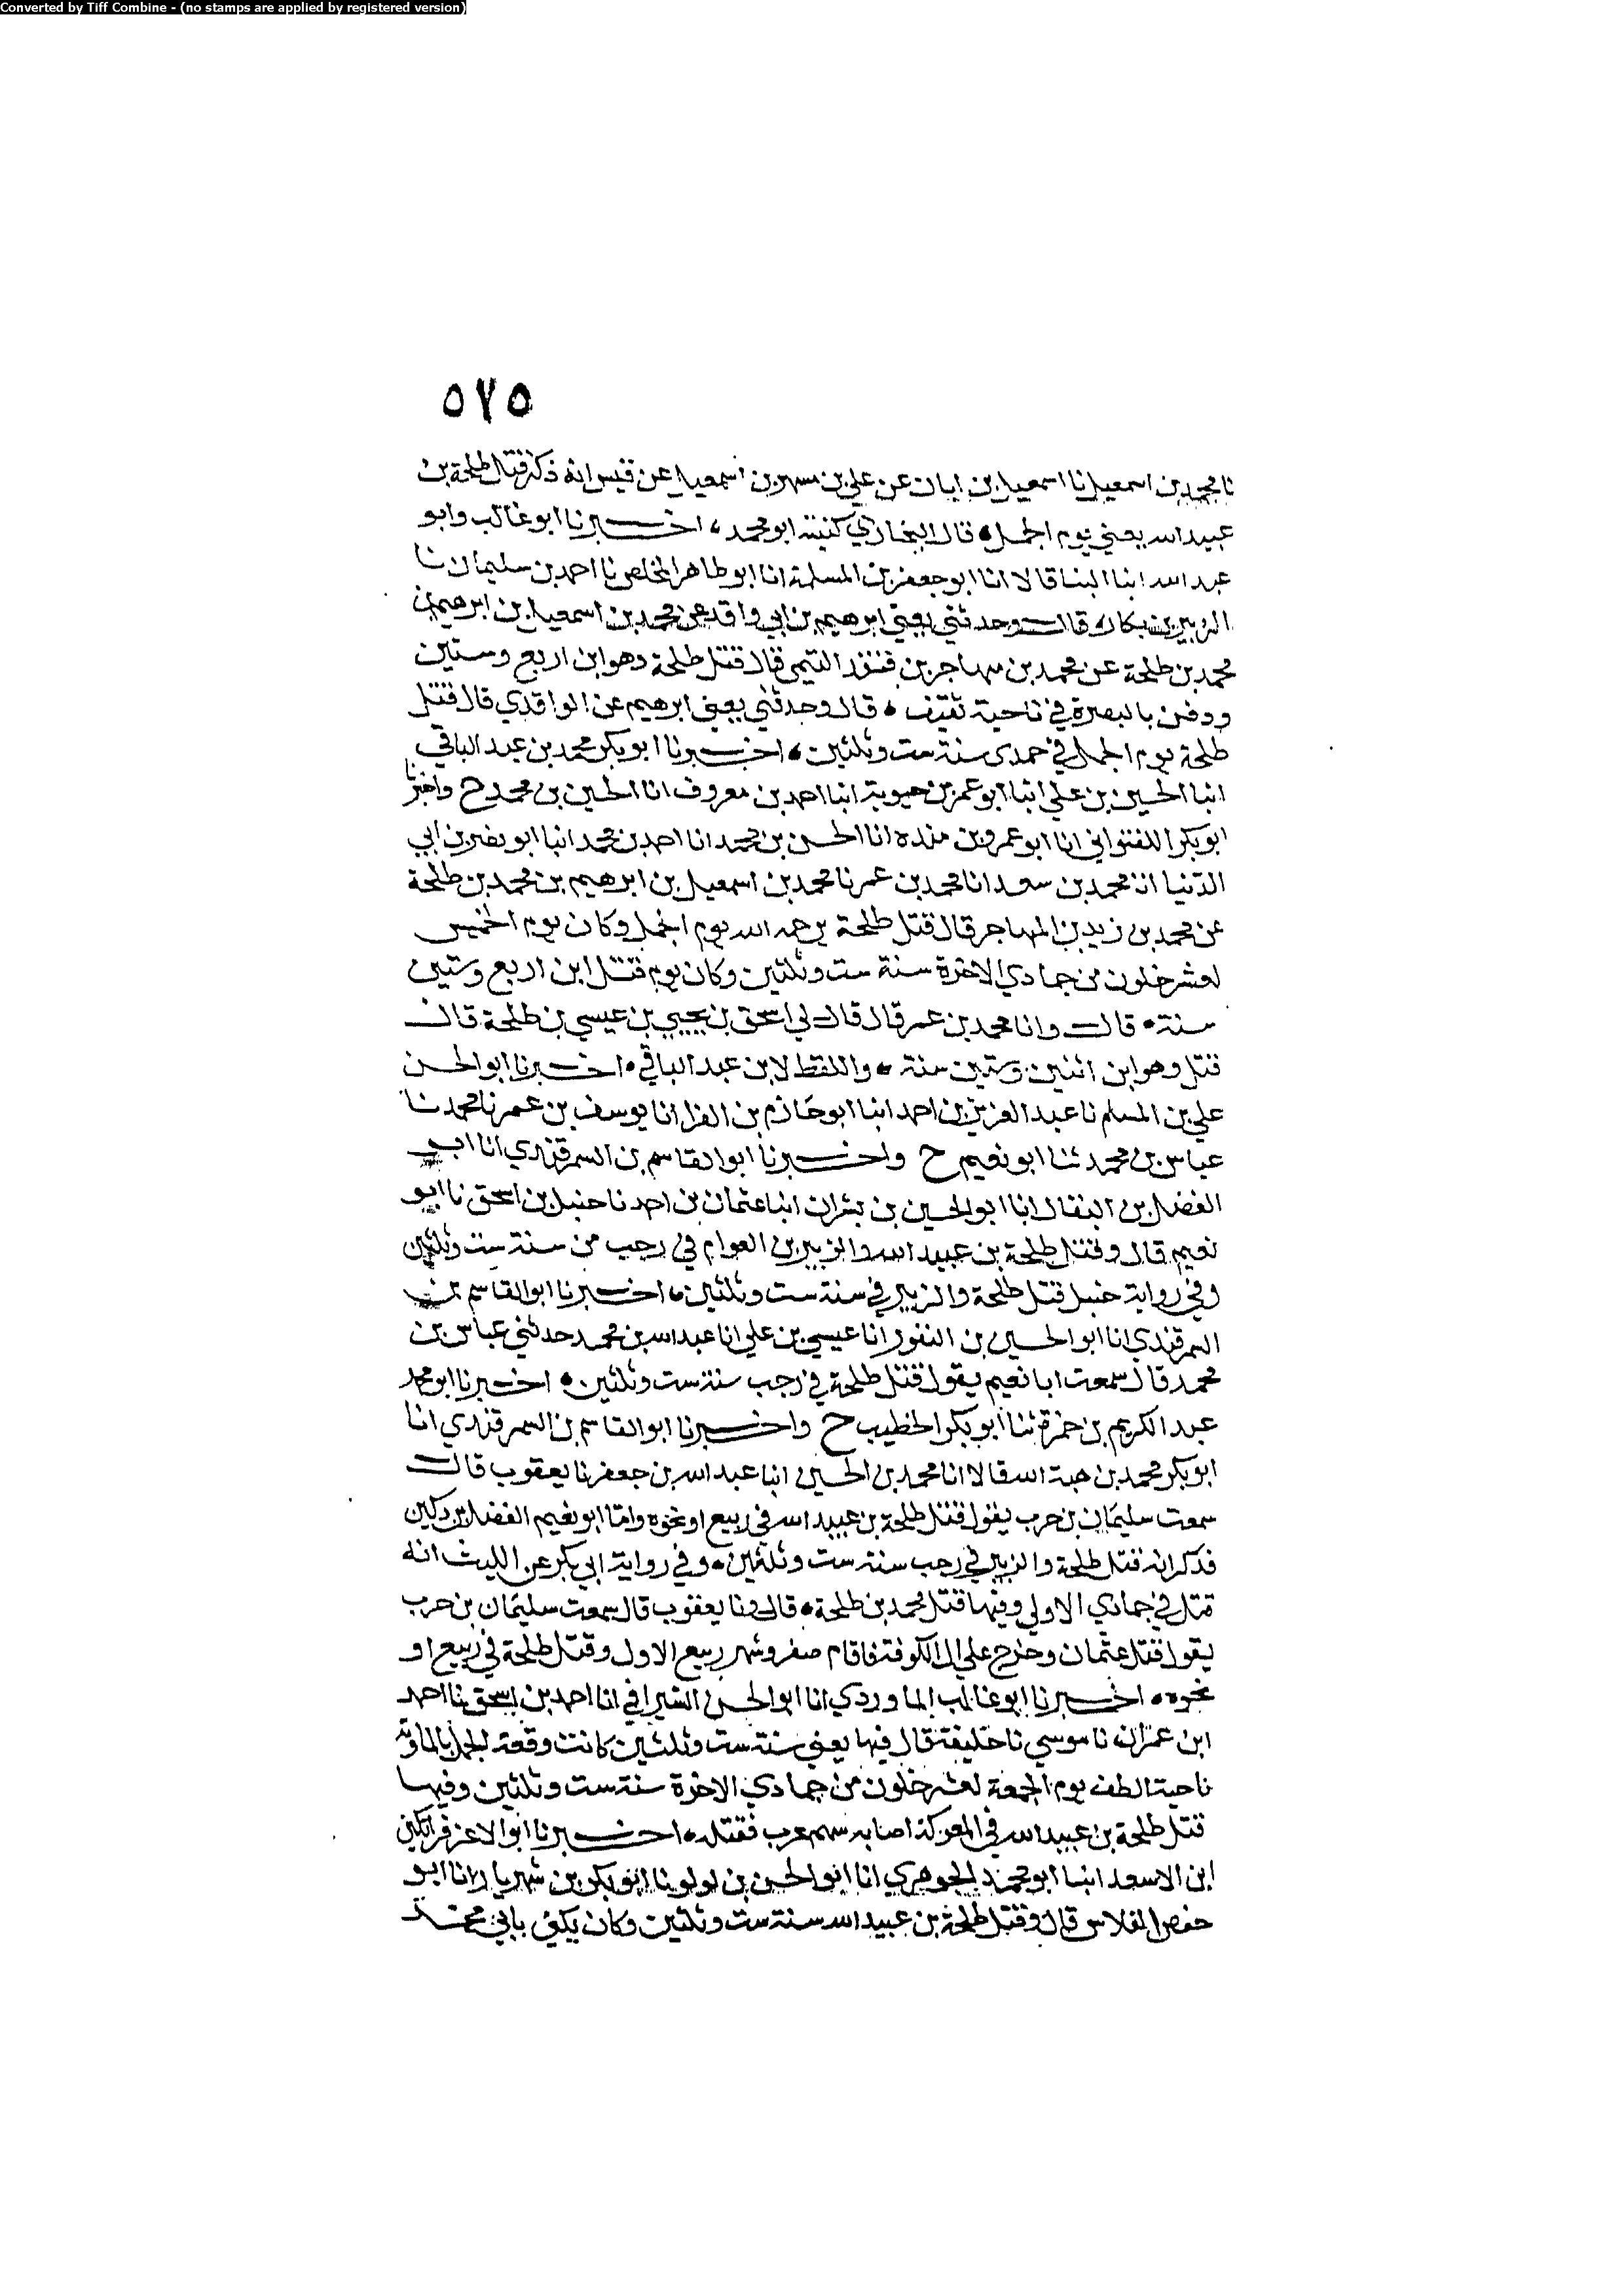 Converted by Tiff Combine - (no stamps are applied by registered version)
٥٧٥
نا محمد بن اسمعيل نا اسمعيل بن ابان عن علي بن مسهر بن اسمعيل عن قيس انه ذكر قتال طلحة بن
عبيد الله يعني يوم الجمل قال البخاري كنيته ابو محمد، اخبرنا ابو غالب وابو
عبد الله ابنا البنا قالا انا ابو جعفر بن المسلمة انا ابو طاهر المخلص نا احمد بن سليمان نا
الزبير بن بكار قال وحدثني يعني ابرهيم بن ابي واقد عن محمد بن اسمعيل بن ابرهيم بن
محمد بن طلحة عن محمد بن مهاجر بن قنفذ التيمي قال قتل طلحة وهو ابن اربع وستين
ودفن بالبصرة في ناحية ثقيف قال وحدثني يعني ابرهيم عن الواقدي قال قتل
طلحة يوم الجمل في حمدى سنة ست وثلثين، اخبرنا ابو بكر محمد بن عبد الباقي
انبا الحسين بن علي انبا ابو عمر بن حيوية انبا احمد بن معروف انا الحسين بن محمد ح واخبرنا
ابو بكر اللفتواني انا ابو عمرو بن منده انا الحسن بن محمد انا احمد بن محمد انبا ابو بضر بن ابي
الدنيا انا محمد بن سعد انا محمد بن عمر نا محمد بن اسمعيل بن ابرهيم بن محمد بن طلحة
عن محمد بن زيد بن المهاجر قال قتل طلحة يرحمه الله يوم الجمل وكان يوم الخميس
لعشر خلون من جمادي الاخرة سنة ست وثلثين وكان يوم قتل ابن اربع وستين
سنة قال وانا محمد بن عمر قال قال لي اسحق بن يحيي بن عيسي بن طلحة قال
قتل وهو ابن اثنين وستين سنة واللفظ لابن عبد الباقي اخبرنا ابو الحسن
علي بن المسلم نا عبد العزيز بن احمد انبا ابو حازم بن الفرا انا يوسف بن عمر نا محمد نا
عباس بن محمد ثنا ابو نعيم ح واخبرنا ابو القاسم بن السمرقندي انا ابو
الفضل بن البقال انا ابو الحسين بن بشران انبا عثمان بن احمد نا حنبل بن اسحق نا ابو
نعيم قال وقتل طلحة بن عبيد الله والزبير بن العوام في رجب من سنة ست وثلثين
وفي رواية حنبل قتل طلحة والزبير في سنة ست وثلثين، اخبرنا ابو القاسم بن
السمرقندي انا ابو الحسين بن النقور انا عيسي بن علي انا عبد الله بن محمد حدثني عباس بن
محمد قال سمعت ابا نعيم يقول قتل طلحة في رجب سنة ست وثلثين اخبرنا ابو محمد
عبد الكريم بن حمزة ثنا ابو بكر الخطيب ح واخبرنا ابو القاسم بن السمرقندي انا
ابو بكر محمد بن هبة الله قالا انا محمد بن الحسين انبا عبد الله بن جعفر نا يعقوب قال
سمعت سليمان بن حرب يقول قتل طلحة بن عبيد الله في ربيع او نحوه واما ابو نعيم الفضل بن دكين
فذكر انه قتل طلحة والزبير في رجب سنة ست وثلثين وفي رواية ابي بكر عن الليث انه
قتل في جمادي الاولي وفيها قتل محمد بن طلحة قال ونا يعقوب قال سمعت سليمان بن حرب
يقول قتل عثمان وخرج علي الي الكوفة فاقام صفر وشهر ربيع الاول وقتل طلحة في ربيع او
نحوه اخبرنا ابو غالب الماوردي انا ابو الحسن السيرافي انا احمد بن اسحق نا احمد
ابن عمران نا موسي نا خليفة قال فيها يعني سنة ست وثلثين كانت وقعة الجمل بالماوية
ناحية الطف يوم الجمعة لعشر خلون من جمادي الاخرة سنة ست وثلثين وفيها
قتل طلحة بن عبيد الله في المعركة اصابه سهم غرب فقتله اخبرنا ابو الاعز قراتكين
ابن الاسعد انبا ابو محمد الجوهري انا ابو الحسن بن لولو نا ابو بكر بن شهريار انا ابو
حفص الفلاس قال وقتل طلحة بن عبيد الله سنة ست وثلثين وكان يكني بابي محمد